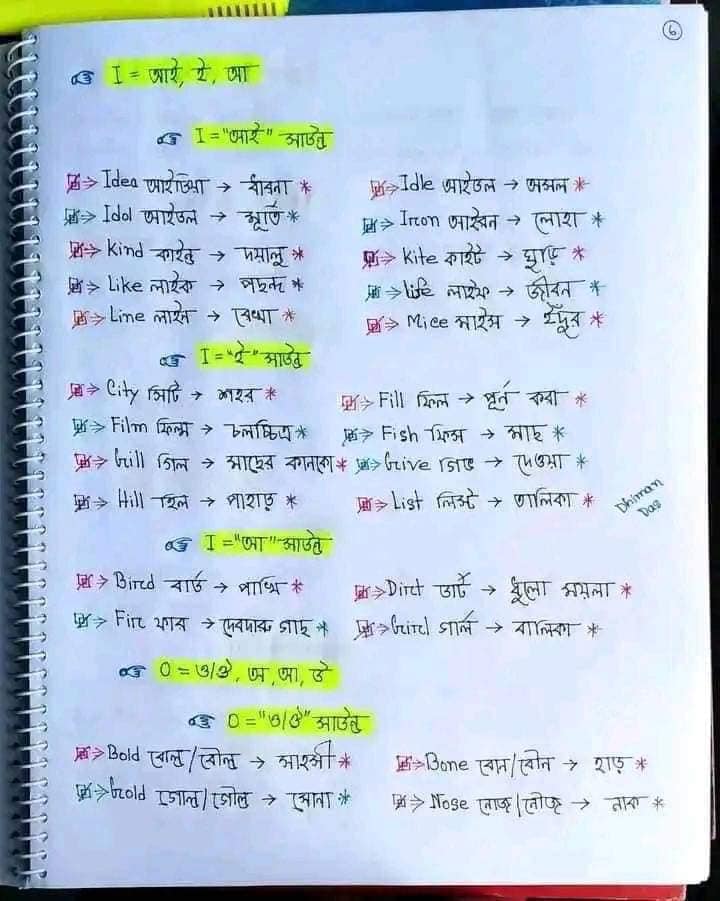 6
I = আই, ই, আ
I = "আই" সাউন্ড
Idea আইডিয়া → ধারনা * Idle আইডল → অলস *
Idol আইডল → মূর্তি * Iron আইরন → লোহা *
Kind কাইন্ড → দয়ালু * Kite কাইট → ঘুড়ি *
Like লাইক → পছন্দ * Life লাইফ → জীবন *
Line লাইন → রেখা * Mice মাইস → ইঁদুর *
I = "ই" সাউন্ড
City সিটি → শহর * Fill ফিল → পূর্ন করা *
Film ফিল্ম → চলচ্চিত্র * Fish ফিস → মাছ *
Gill গিল → মাছের কানকো * Give গিভ → দেওয়া *
Hill হিল → পাহাড় * List লিস্ট → তালিকা *
Dhiman
Das
I = "আ" সাউন্ড
Bird বার্ড → পাখি * Dirt ডার্ট → ধুলো ময়লা *
Fir ফার → দেবদারু গাছ * Girl গার্ল → বালিকা *
O = ও/ঔ, অ, আ, উ
O = "ও/ঔ" সাউন্ড
Bold বোল্ড/বৌল্ড → সাহসী * Bone বোন/বৌন → হাড় *
Gold গোল্ড/গৌল্ড → সোনা * Nose নোজ/নৌজ → নাক *